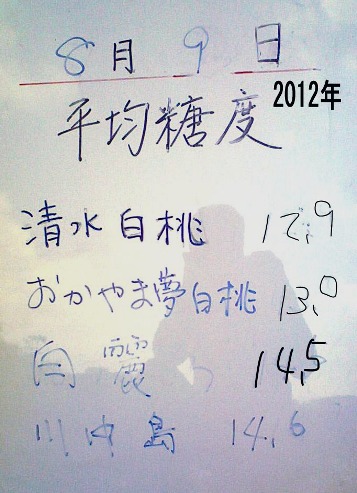 8月9日
2012年
平均糖度
清水白桃 12,9
おかやま夢白桃 13,0
白麗 14,5
川中島 14,6